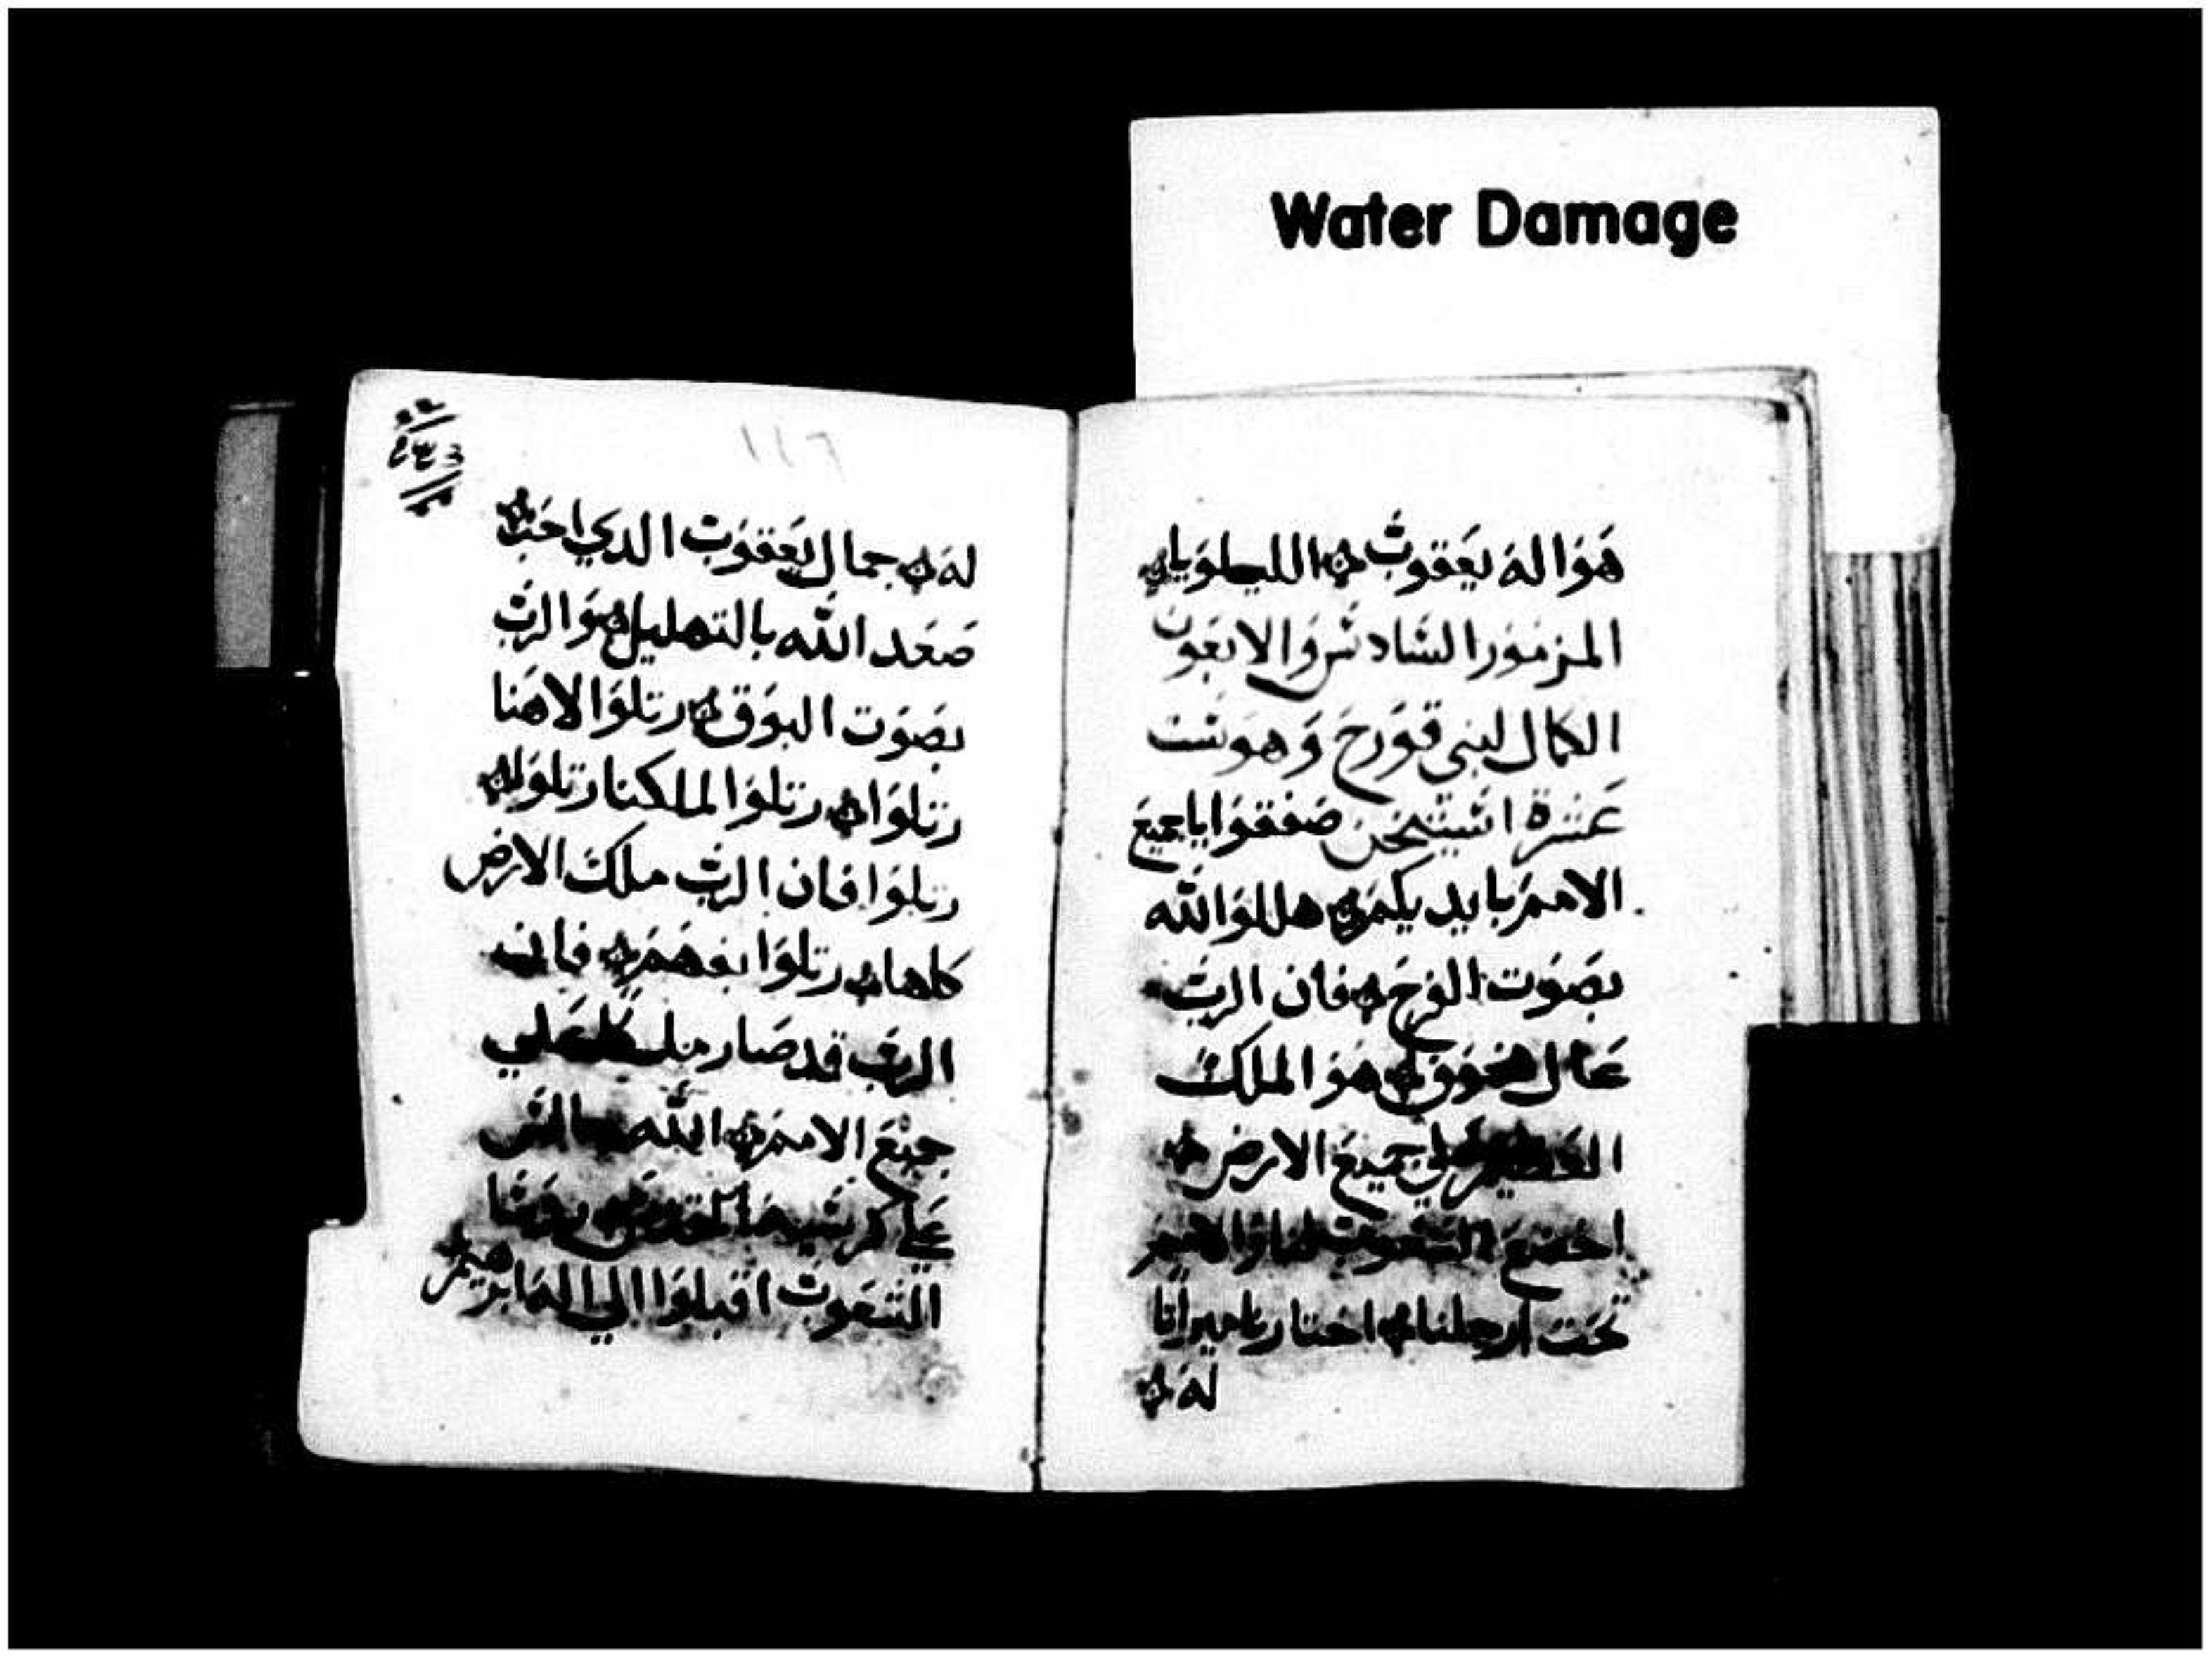 Water Damage
هوَ اله يعَقوبْ الليلوَيا
المزمَور السَادسْ وَالاربعَون
الكمال لبني قوَرحَ وَهوَ ست
عَشرة استيخن صَفقوَا ياجميعَ
الاممَ بايديكمَ هللوَا الله
بصَوَت الفرحَ فان الربَ
عَال مخوَف هوَ الملكَ
العَظيم علي جميعَ الارض
اخضعَ الشعوبَ لنا وَالاممَ
تحَتَ ارجلنا اختارنا ميراثا
لهَ
١١٦
لهَ جمال يعَقوَبْ الدي احَبْ
صَعَد الله بالتهليل وَالربَ
بصَوَت البوَق رتلوَا لالاهَنا
رتلوَا رتلوَا لملكنا رتلوَا
رتلوَا فان الربَ ملكَ الارض
كلها رتلوَا بفهَمَ فان
الربَ قد صَار علي
جميْعَ الاممَ الله جالسَ
عَلي كرسْيهَ
الشعَوبَ اقبلوَا الي اله ابرهيمَ